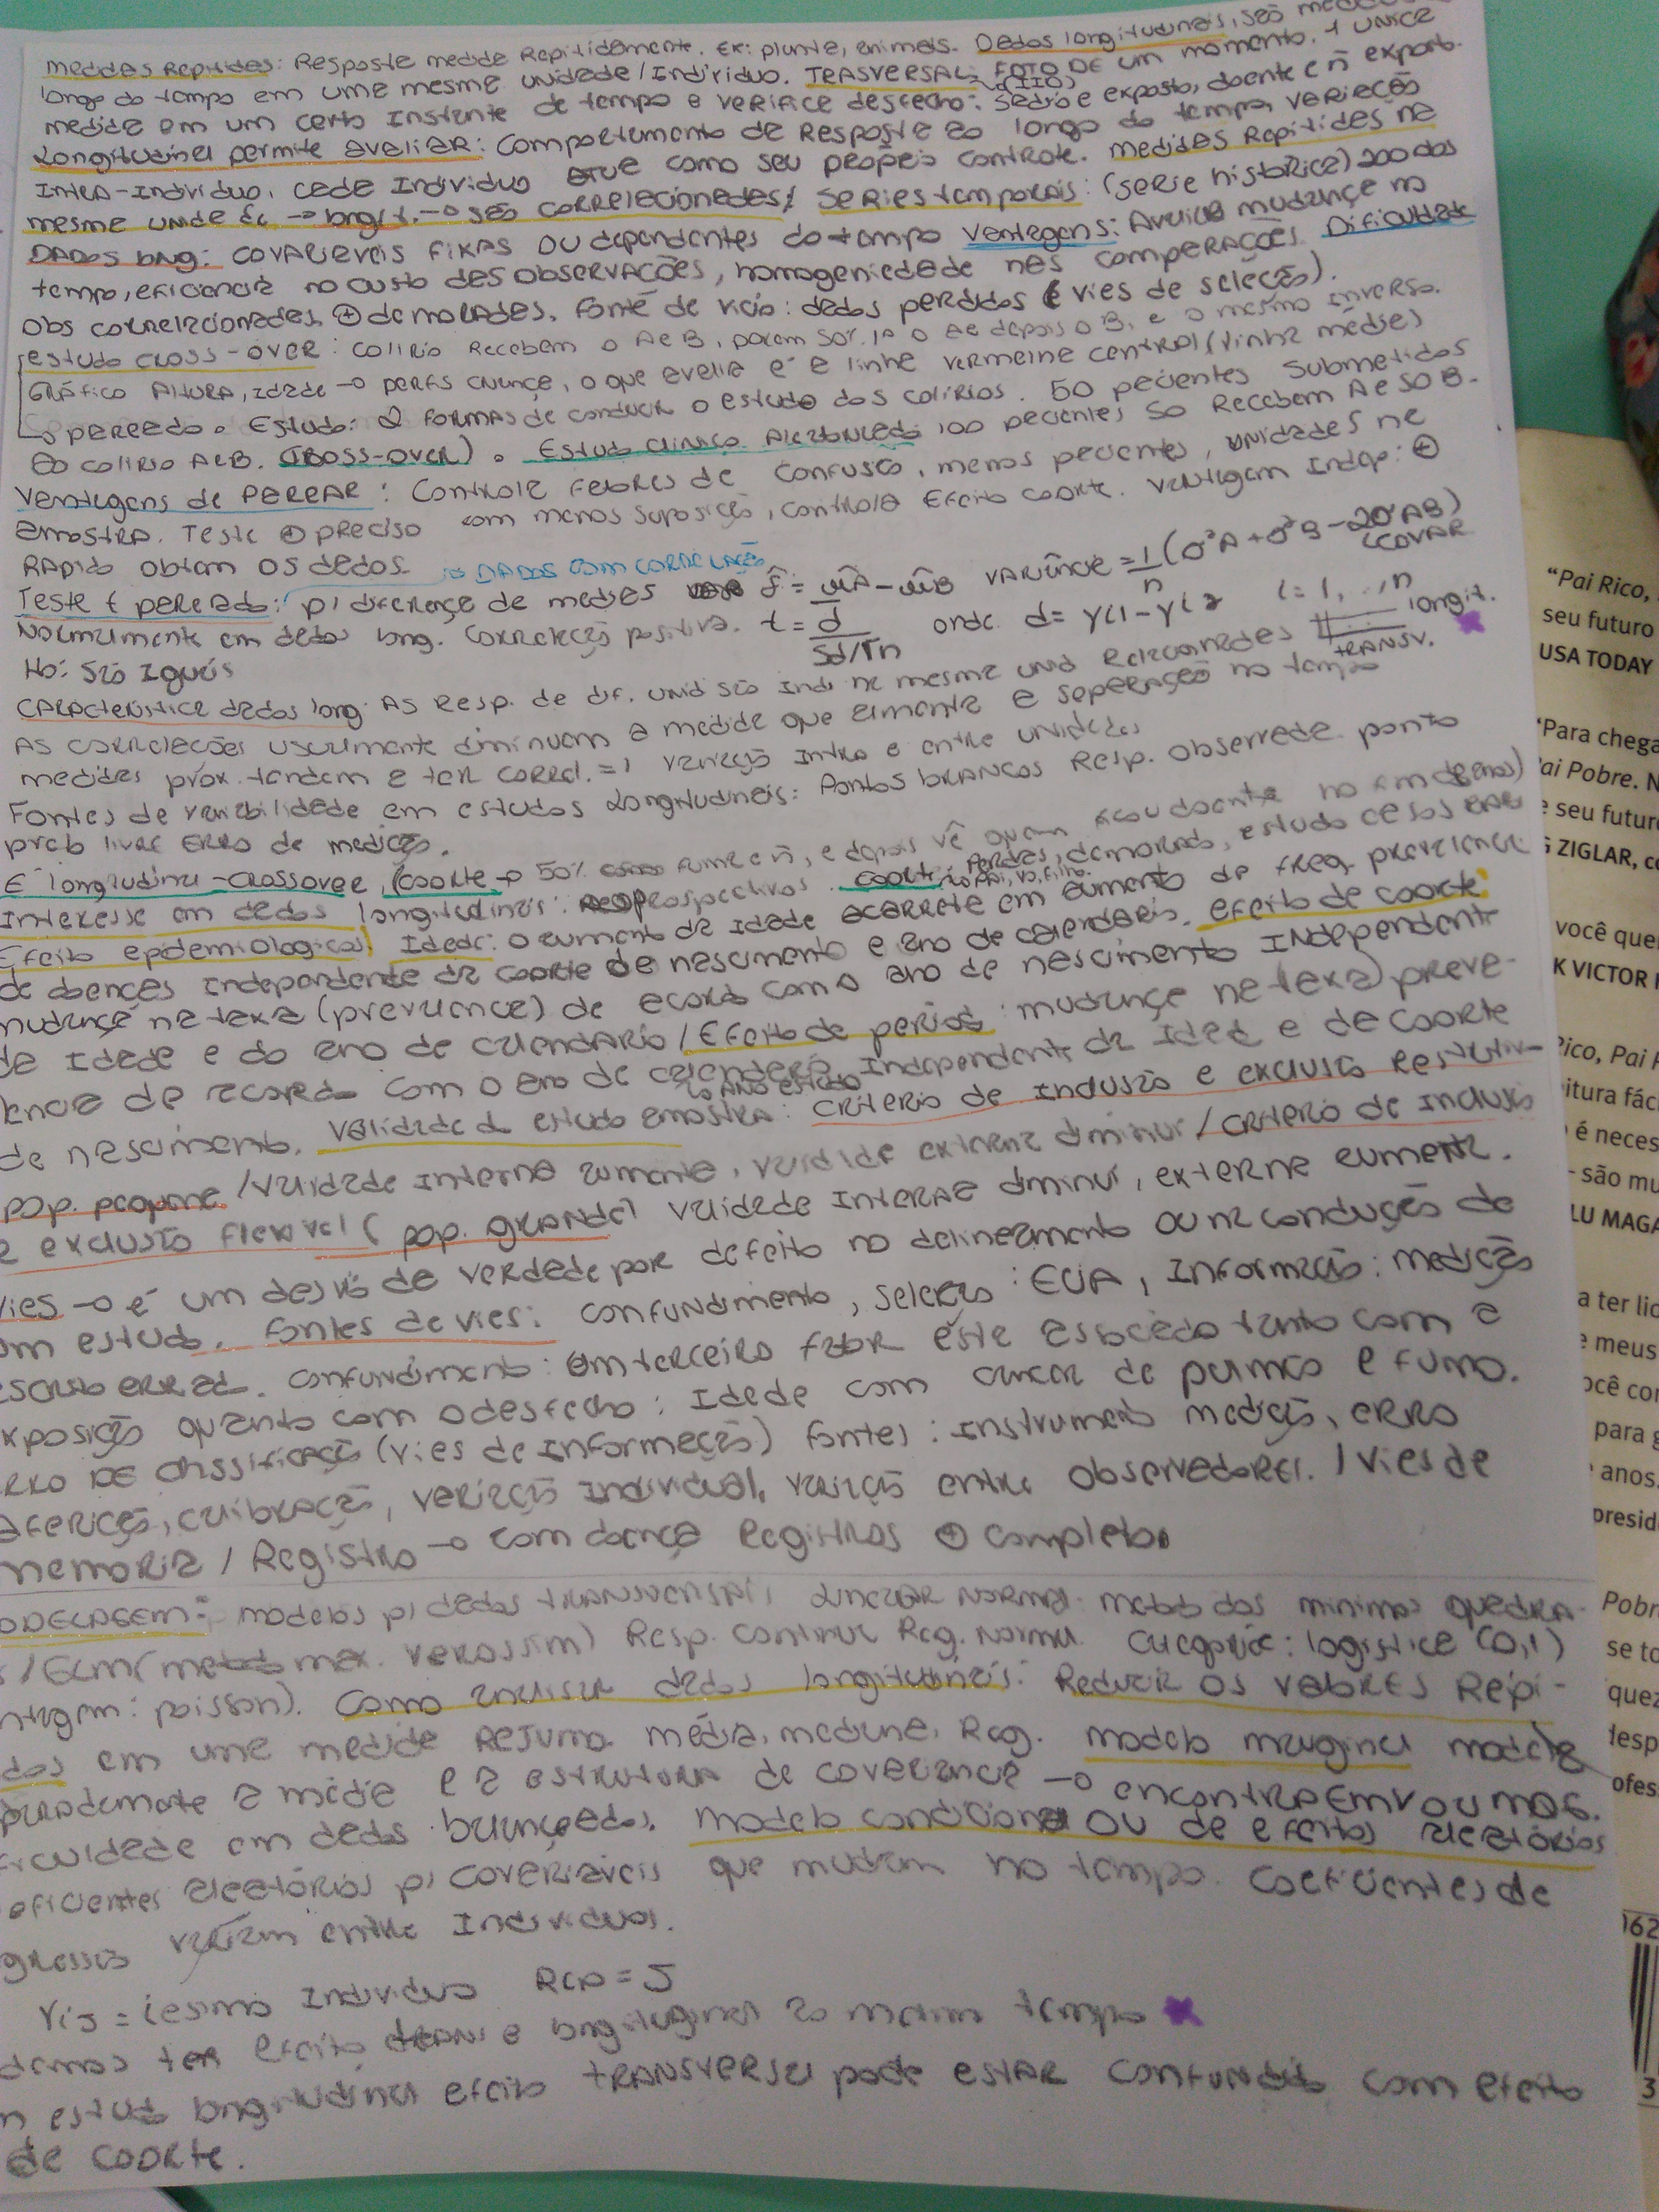 medidas Repitidas: Resposta medida Repitidamente. Ex: planta, animais. Dados longitudinais, são
longo do tempo em uma mesma unidade/Indivíduo. TRASVERSAL: FOTO DE um momento. 1 unica
medida em um certo Instante de tempo e verifica desfecho: sadio e exposto, doente e ñ expost.
Longitudinal permite avaliar: comportamento da Resposta ao longo do tempo, variação
Intra-Individuo. cada Individuo como seu própeio controle. medidas Repitidas na
mesma unidade -> longit. -> são correlecionadas/ Series temporais: (serie historica) 200 dados
DADOS long: covariaveis FIXAS OU dependentes do tempo Vantagens: Avalia mudança no
tempo, eficiencia no custo das observações, homogeniedade nas comparações. Dificuldade
obs correlacionadas, + demorados. Fonte de vicio: dados perdidos (vies de seleção).
estudo cross-over: colirio Recebem o A e B, porem 50% 1º o A e depois o B, e o mesmo inverso.
Gráfico Altura, idade -> perfis criança, o que avalia é a linha vermelha central (linha média)
-> pareado. Estudo: 2 formas de conduzir o estudo dos colírios. 50 pacientes submetidos
ao colirio A e B. (CROSS-OVER). Estudo clinico Aleatorizado 100 pacientes 50 Recebem A e 50 B.
Vantagens de PAREAR: controla fatores de confusão, menos pacientes, unidades na
amostra. Teste + preciso com menos suposição, controla efeito coorte. Vantagem Indep: +
Rapido obtem os dados. -> DADOS COM CORRELAÇÃO
Teste t pareado: p/ diferença de medias variância = 1/n (σ²A + σ²B - 2σAB)
COVAR
Normalmente em dados long. correlação positiva. t = d/Sd/√n onde d = yi1 - yi2 i = 1, ..., n
Ho: são Iguais
longit.
TRANSV.
Caracteristica dados long: As Resp. de dif. unid são Ind. na mesma unid Relacionadas
As correlações usualmente diminuem a medida que aumenta a separação no tempo
medidas prox. tendem a ter correl. = 1 variação Intra e entre unidades
Fontes de variabilidade em estudos Longitudinais: Pontos brancos Resp. observada. ponto
preto livre erro de medição.
É longitudinal - crossover, (coorte -> 50% fuma e ñ, e depois vê quem ficou doente
Interesse em dados longitudinais: prospectivos. coorte
Efeito epidemiologicos/ Idade: o aumento da idade acarreta em aumento de freq. prevalencia
de doenças independente da coorte de nascimento e ano de calendario. efeito de coorte:
mudança na taxa (prevalencia) de acordo com o ano de nascimento Independente
da Idade e do ano de calendário/Efeito de periodo: mudança na taxa) preva-
lencia de acordo com o ano de calendario Independente da Idade e de coorte
-> ANO ESTUDO
de nascimento. Validade do estudo amostra: critério de Inclusão e exclusão Restritiv-
pop. pequena/validade Interna aumenta, validade externa diminui/critério de Inclusão
e exclusão flexivel (pop. grande) validade Interna diminui, externa aumenta.
Vies -> é um desvio da verdade por defeito no delineamento ou na condução de
um estudo. Fontes de vies: confundimento, seleção: ECIA, Informação: medição
errad. confundimento: um terceiro fator está associado tanto com a
exposição quanto com o desfecho: Idade com cancer de pulmão e fumo.
ERRO DE classificação (vies de informação) fontes: Instrumento medição, erro
aferição, calibração, variação Individual, variação entre observadores. / Vies de
memoria / Registro -> com doença Registros + completo
ODELAGEM: modelos p/ dados transversais, Linear Normal. metodo dos minimos quadra-
s/ECM (metodo max. verossim) Resp. continua Reg. Normal. categorica: logistica (0,1)
ntagem: poisson). Como analisar dados longitudinais: Reduzir os valores Repi-
dos em uma medida Resumo. média, mediana, Reg. modelo marginal modela
paradamente a média e a estrutura de covariancia -> encontra EMV OU MQG.
ficuldade em dados balanceados. modelo condicional OU de efeitos aleatórios
oeficientes aleatórios p/ covariáveis que mudam no tempo. coeficientes de
gressão variam entre Individuos.
Yij = iesimo Individuo Rep = J
demos ter efeito trans e longitudinal ao mesmo tempo
m estudo longitudinal efeito transversal pode estar confundido com efeito
de coorte.
"Pai Rico,
seu futuro
USA TODAY
"Para chega
ai Pobre. N
e seu futur
ZIGLAR, c
você que
K VICTOR
Rico, Pai
itura fác
é neces
são mu
LU MAGA
a ter lid
e meus
ocê con
para g
anos.
presid
Pobr
se to
quez
desp
ofes
162
3